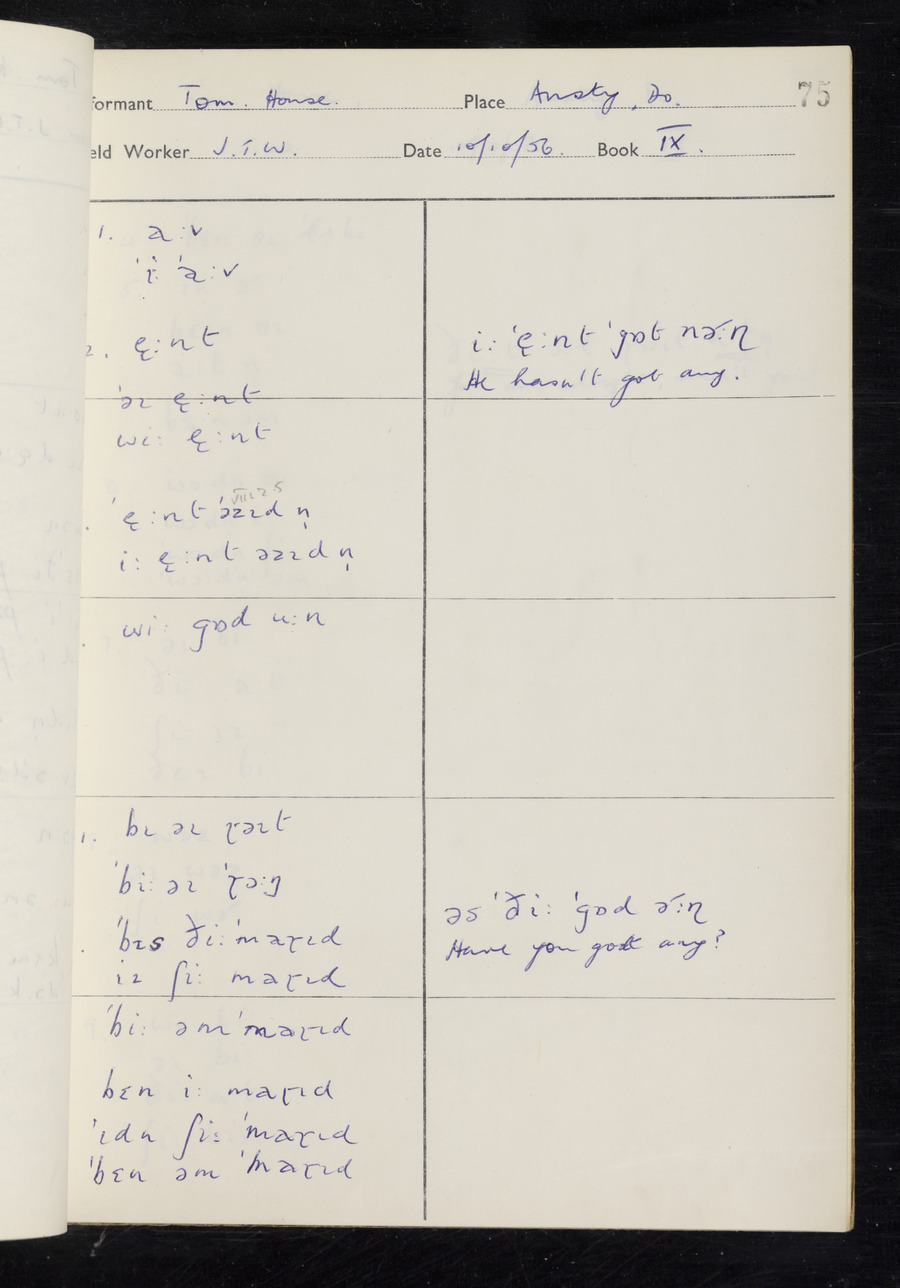 formant Tom. House. Place Ansty, Do. 75
eld Worker J.T.W. Date 10/10/56. Book IX.
1. a:v
ˈi: ˈa:v
2. ę:nt
i: ˈę:nt ˈgɒt nə:n
He hasn't got any.
ˈəɪ ę:nt
wi: ę:nt
VIII 2 5
ˈę:nt ˈəzɪd n̩
i: ę:nt əzɪd n̩
wi: gɒd u:n
1. bɪ əɪ ɽəɪt
ˈbi: əɪ ˈɽɔ:ŋ
ˈbɪs ði: ˈmaɽɪd
əs ˈði: ˈgɒd ə:n
Have you got any?
ɪz ʃi: maɽɪd
ˈbi: əm ˈmaɽɪd
bɛn i: maɽɪd
ˈɪdn ʃi: ˈmaɽɪd
ˈbɛn əm ˈmaɽɪd